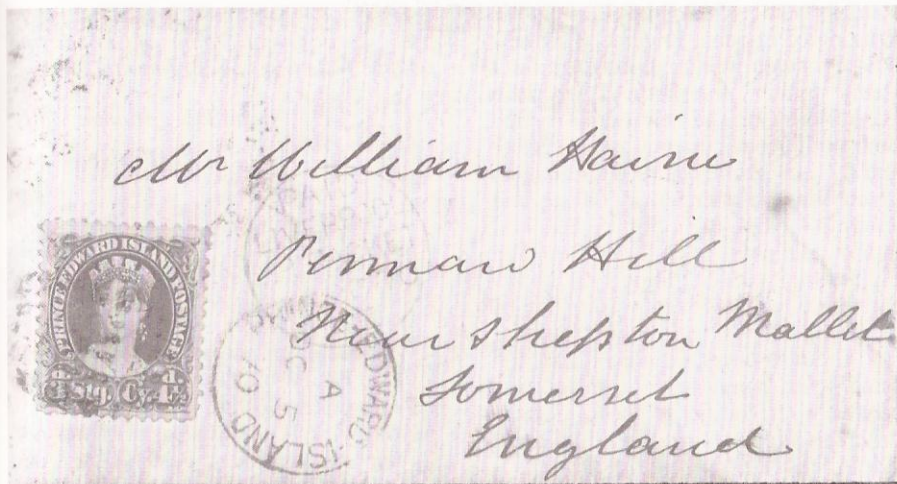 Mr William Haine
Pennard Hill
Near Shepton Mallet
Somerset
England
PRINCE EDWARD ISLAND POSTAGE
3d Stg. Cy. 4½d
PRINCE EDWARD ISLAND
A
OC 5
70
PAID
LIVERPOOL